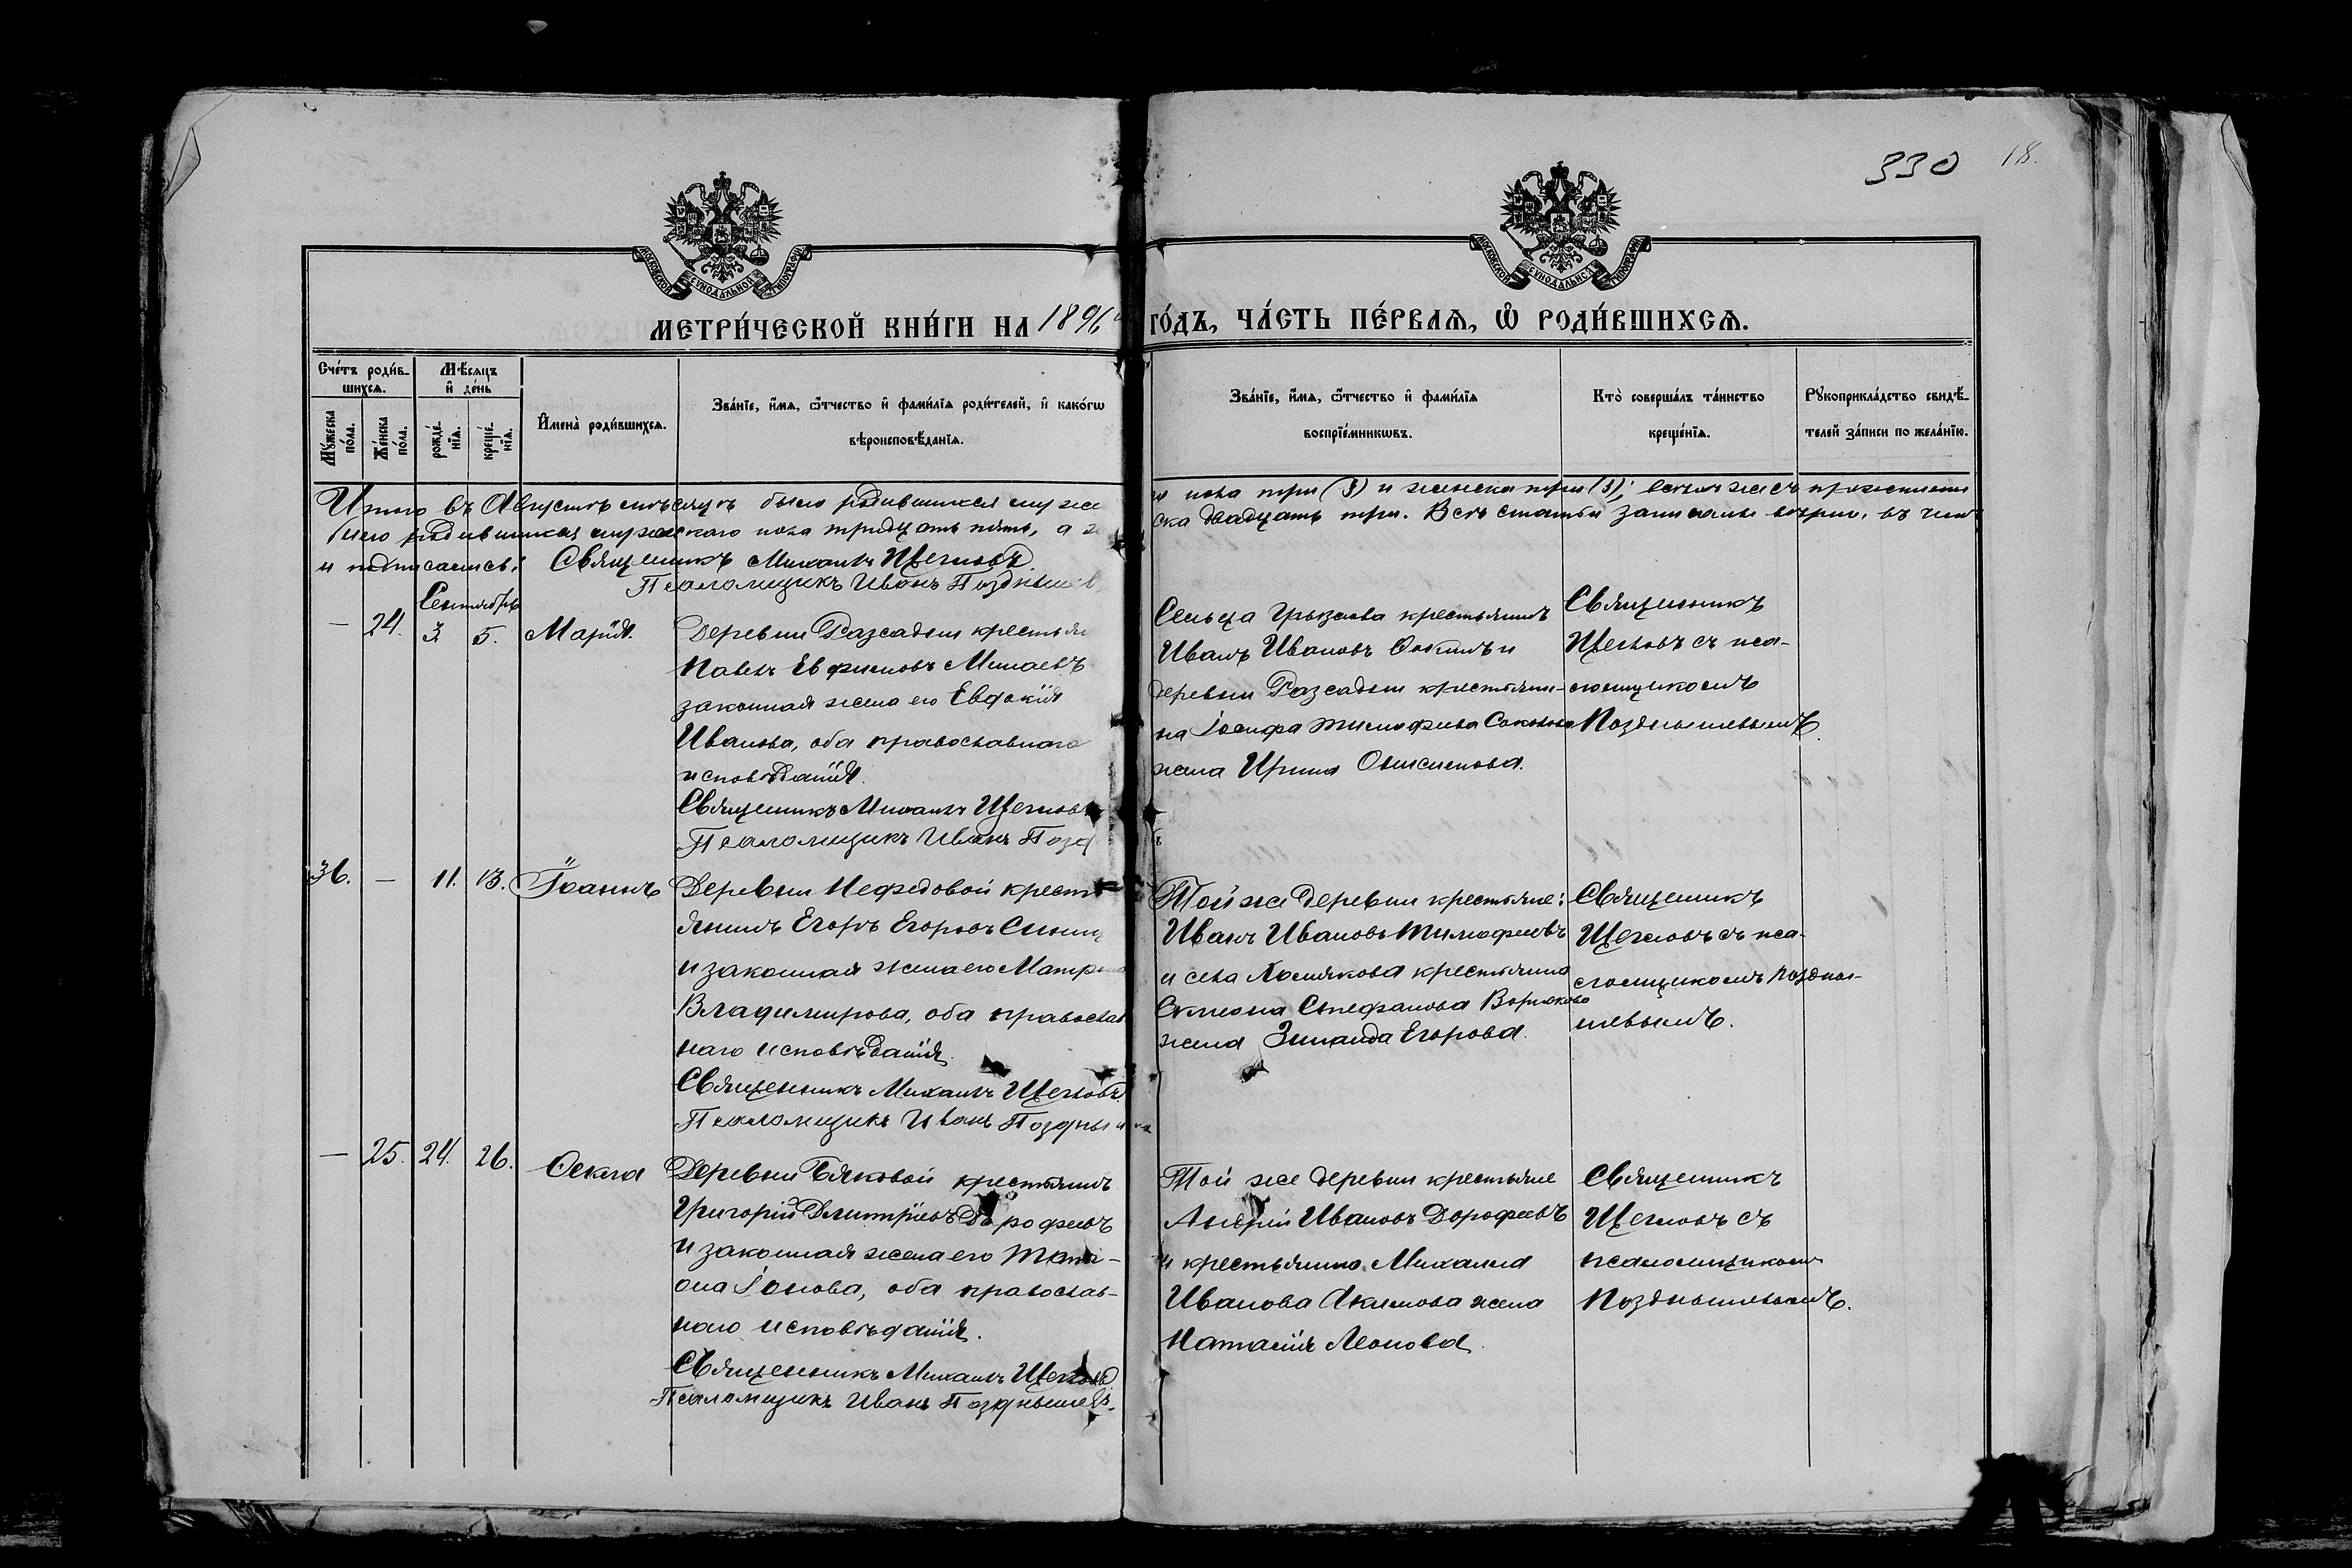 330 18.
МОСКОВСКОЙ СѴНОДАЛЬНОЙ ТИПОГРАФІИ
МОСКОВСКОЙ СѴНОДАЛЬНОЙ ТИПОГРАФІИ
МЕТРИ́ЧЕСКОЙ КНИ́ГИ НА 1896 ГО́ДЪ, ЧА́СТЬ ПЕ́РВАЯ, Ѡ РОДИ́ВШИХСЯ.
Сче́тъ роди́в-
шихся.
Мѣ́сяцъ
и де́нь
Му́жеска
по́ла.
Же́нска
по́ла.
рожде́-
нія.
креще́-
нія.
Имена̀ роди́вшихся.
Зва́ніе, и́мя, ѻ́тчество и фами́лія роди́телей, и како́гѡ
вѣроисповѣ́данія.
Зва́ніе, и́мя, ѻ́тчество и фами́лія
воспрїе́мникѡвъ.
Кто̀ соверша́лъ та́инство
креще́нія.
Рꙋкоприкла́дство свидѣ́-
телей за́писи по жела́нію.
Итого въ Августѣ мѣсяцѣ было родившихся муже
пола три (3) и женска три (3);
родившихся мужескаго пола тридцать пять, а
ска двадцать три. Всѣ статьи записаны вѣрно, въ чем
и подписались: Священникъ Михаилъ Щегловъ.
Псаломщикъ Иванъ Позднышев
Сентябрь
— 24. 3 5. Марія.
Деревни Разсадки крестьян
Павелъ Евфимовъ Минаевъ
законная жена его Евдокія
Иванова, оба православнаго
исповѣданія.
Священникъ Михаилъ Щеглов
Псаломщикъ Иванъ Позд
Сельца Грызлова крестьянинъ
Иванъ Ивановъ и
деревни Разсадки крестьяни-
на Іосифа Тимофеева
жена Ирина Онисимова.
Священникъ
Щегловъ съ пса-
ломщикомъ
Позднышевымъ.
36. — 11. 13. Іоаннъ
Деревни Нефедовой крест
янинъ Егоръ Егоровъ
и законная жена его Матрона
Владимирова, оба православ
наго исповѣданія.
Священникъ Михаилъ Щегловъ.
Псаломщикъ Иванъ Поздныш
Той же деревни крестьяне:
Иванъ Ивановъ Тимофеевъ
и села Хомякова крестьянина
Симеона Стефанова
жена Зинаида Егорова.
Священникъ
Щегловъ съ пса-
ломщикомъ Поздны-
шевымъ.
— 25. 24. 26. Ѳекла
Деревни Бяковой крестьянинъ
Григорій Димитріевъ Дорофеевъ
и законная жена его Тати-
ана Іонова, оба православ-
наго исповѣданія.
Священникъ Михаилъ Щегловъ
Псаломщикъ Иванъ Позднышевъ.
Той же деревни крестьяне
Андрей Ивановъ Дорофеевъ
и крестьянина Михаила
Иванова Акимова жена
Наталія Леонова.
Священникъ
Щегловъ съ
псаломщикомъ
Позднышевымъ.